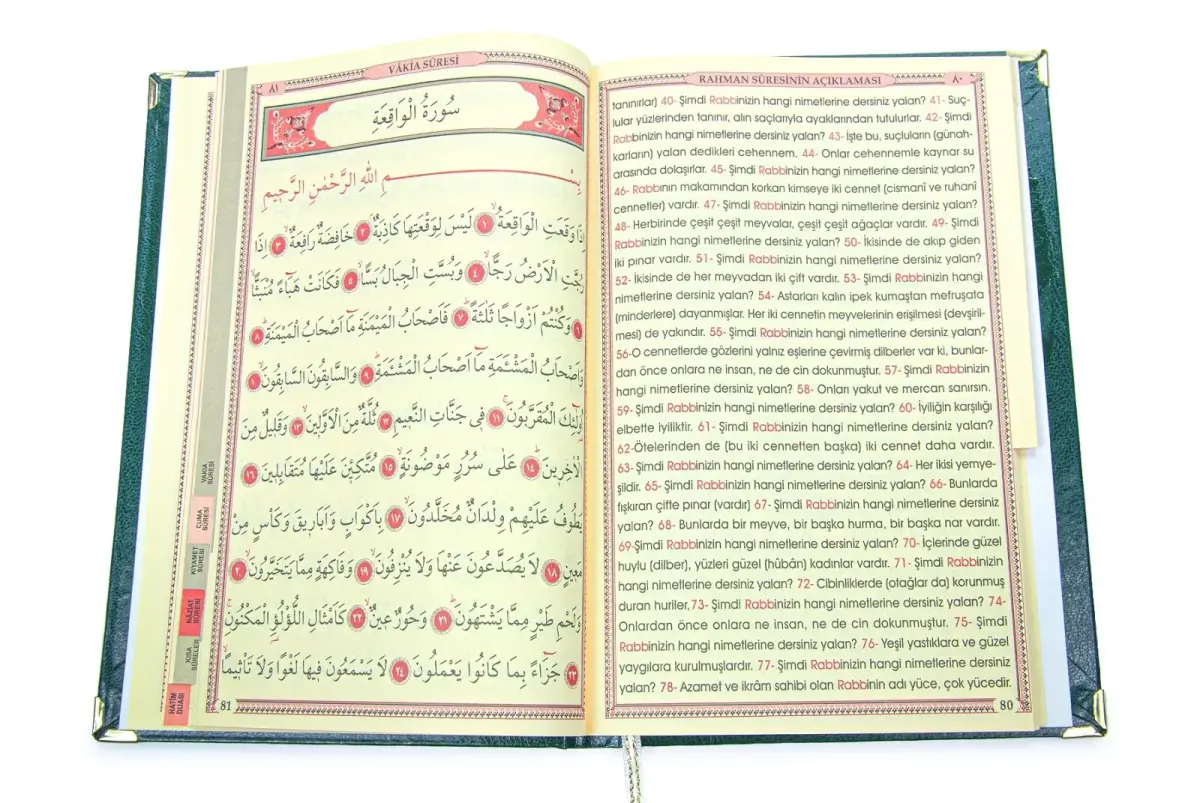 RAHMAN SÛRESİNİN AÇIKLAMASI ٨٠
tanınırlar) 40- Şimdi Rabbinizin hangi nimetlerine dersiniz yalan? 41- Suç-
lular yüzlerinden tanınır, alın saçlarıyla ayaklarından tutulurlar. 42- Şimdi
Rabbinizin hangi nimetlerine dersiniz yalan? 43- İşte bu, suçluların (günah-
karların) yalan dedikleri cehennem. 44- Onlar cehennemle kaynar su
arasında dolaşırlar. 45- Şimdi Rabbinizin hangi nimetlerine dersiniz yalan?
46- Rabbının makamından korkan kimseye iki cennet (cismanî ve ruhanî
cennetler) vardır. 47- Şimdi Rabbinizin hangi nimetlerine dersiniz yalan?
48- Herbirinde çeşit çeşit meyvalar, çeşit çeşit ağaçlar vardır. 49- Şimdi
Rabbinizin hangi nimetlerine dersiniz yalan? 50- İkisinde de akıp giden
iki pınar vardır. 51- Şimdi Rabbinizin hangi nimetlerine dersiniz yalan?
52- İkisinde de her meyvadan iki çift vardır. 53- Şimdi Rabbinizin hangi
nimetlerine dersiniz yalan? 54- Astarları kalın ipek kumaştan mefruşata
(minderlere) dayanmışlar. Her iki cennetin meyvelerinin erişilmesi (devşiril-
mesi) de yakındır. 55- Şimdi Rabbinizin hangi nimetlerine dersiniz yalan?
56-O cennetlerde gözlerini yalnız eşlerine çevirmiş dilberler var ki, bunlar-
dan önce onlara ne insan, ne de cin dokunmuştur. 57- Şimdi Rabbinizin
hangi nimetlerine dersiniz yalan? 58- Onları yakut ve mercan sanırsın.
59- Şimdi Rabbinizin hangi nimetlerine dersiniz yalan? 60- İyiliğin karşılığı
elbette iyiliktir. 61- Şimdi Rabbinizin hangi nimetlerine dersiniz yalan?
62-Ötelerinden de (bu iki cennetten başka) iki cennet daha vardır.
63- Şimdi Rabbinizin hangi nimetlerine dersiniz yalan? 64- Her ikisi yemye-
şildir. 65- Şimdi Rabbinizin hangi nimetlerine dersiniz yalan? 66- Bunlarda
fışkıran çifte pınar (vardır) 67- Şimdi Rabbinizin hangi nimetlerine dersiniz
yalan? 68- Bunlarda bir meyve, bir başka hurma, bir başka nar vardır.
69-Şimdi Rabbinizin hangi nimetlerine dersiniz yalan? 70- İçlerinde güzel
huylu (dilber), yüzleri güzel (hûbân) kadınlar vardır. 71- Şimdi Rabbinizin
hangi nimetlerine dersiniz yalan? 72- Cibinliklerde (otağlar da) korunmuş
duran huriler, 73- Şimdi Rabbinizin hangi nimetlerine dersiniz yalan? 74-
Onlardan önce onlara ne insan, ne de cin dokunmuştur. 75- Şimdi
Rabbinizin hangi nimetlerine dersiniz yalan? 76- Yeşil yastıklara ve güzel
yaygılara kurulmuşlardır. 77- Şimdi Rabbinizin hangi nimetlerine dersiniz
yalan? 78- Azamet ve ikrâm sahibi olan Rabbinin adı yüce, çok yücedir.
80
٨١ VÂKIA SÛRESİ
سُورَةُ الْوَاقِعَةِ
بِسْمِ اللّٰهِ الرَّحْمٰنِ الرَّحٖيمِ
اِذَا وَقَعَتِ الْوَاقِعَةُۙ ١ لَيْسَ لِوَقْعَتِهَا كَاذِبَةٌۢ ٢ خَافِضَةٌ رَافِعَةٌۙ ٣ اِذَا
رُجَّتِ الْاَرْضُ رَجًّاۙ ٤ وَبُسَّتِ الْجِبَالُ بَسًّاۙ ٥ فَكَانَتْ هَبَٓاءً مُنْبَثًّاۙ
٦ وَكُنْتُمْ اَزْوَاجًا ثَلٰثَةًؕ ٧ فَاَصْحَابُ الْمَيْمَنَةِ مَٓا اَصْحَابُ الْمَيْمَنَةِؕ ٨
وَاَصْحَابُ الْمَشْـَٔمَةِ مَٓا اَصْحَابُ الْمَشْـَٔمَةِؕ ٩ وَالسَّابِقُونَ السَّابِقُونَۙ ١٠
اُولٰٓئِكَ الْمُقَرَّبُونَۚ ١١ فٖى جَنَّاتِ النَّعٖيمِ ١٢ ثُلَّةٌ مِنَ الْاَوَّلٖينَۙ ١٣ وَقَلٖيلٌ مِنَ
الْاٰخِرٖينَؕ ١٤ عَلٰى سُرُرٍ مَوْضُونَةٍۙ ١٥ مُتَّكِـٖٔينَ عَلَيْهَا مُتَقَابِلٖينَ ١٦
يَطُوفُ عَلَيْهِمْ وِلْدَانٌ مُخَلَّدُونَۙ ١٧ بِاَكْوَابٍ وَاَبَارٖيقَ وَكَاْسٍ مِنْ
مَعٖينٍۙ ١٨ لَا يُصَدَّعُونَ عَنْهَا وَلَا يُنْزِفُونَۙ ١٩ وَفَاكِهَةٍ مِمَّا يَتَخَيَّرُونَۙ ٢٠
وَلَحْمِ طَيْرٍ مِمَّا يَشْتَهُونَؕ ٢١ وَحُورٌ عٖينٌۙ ٢٢ كَاَمْثَالِ اللُّؤْلُؤِ الْمَكْنُونِۚ
٢٣ جَزَٓاءً بِمَا كَانُوا يَعْمَلُونَ ٢٤ لَا يَسْمَعُونَ فٖيهَا لَغْوًا وَلَا تَاْثٖيمًاۙ
81
VAKIA
SÛRESİ
CUMA
SÛRESİ
KIYAMET
SÛRESİ
NÂZİAT
SÛRESİ
KISA
SÛRELER
HATİM
DUASI